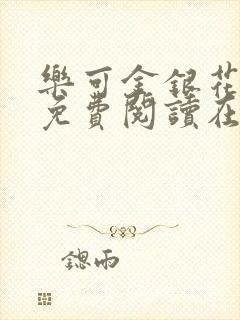 樂可金銀花
免費閱讀在
鍶雨